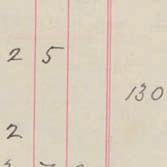 2 5
130
2